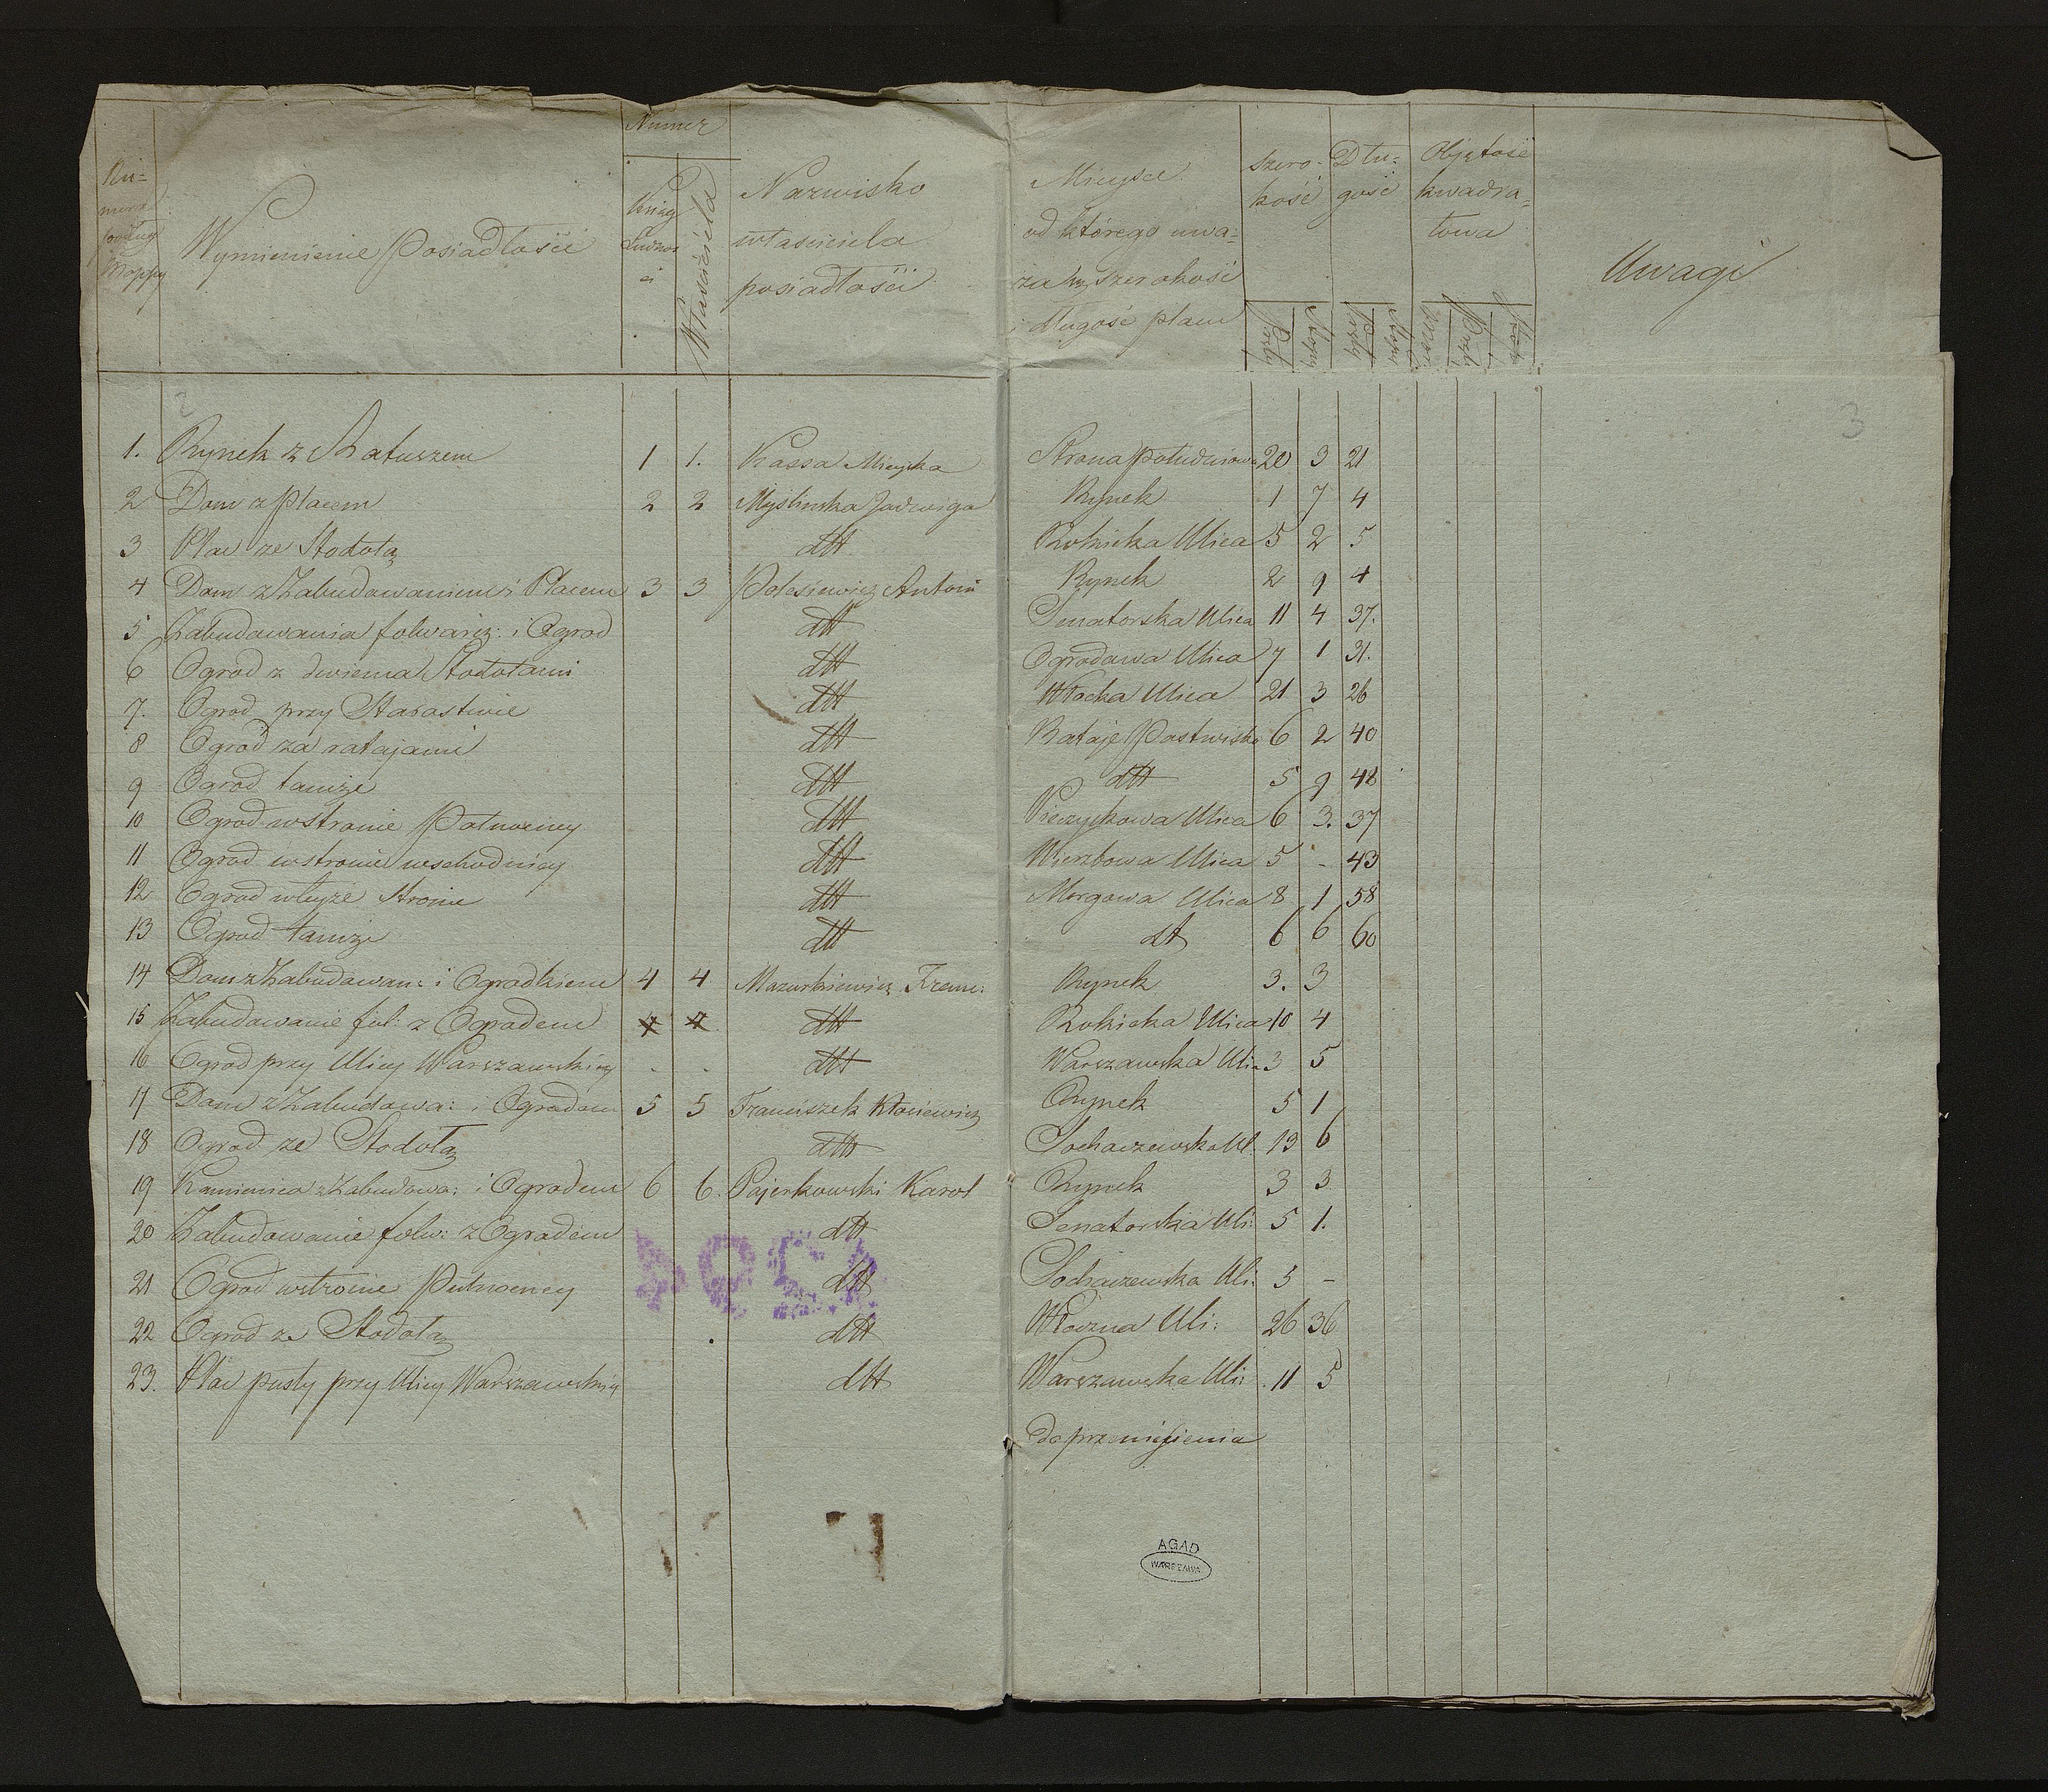 Numer
Nu=
mera
podług
Mappy
Wymienienie Posiadłości
Księg
Ludnoś
ci
Właściciela
Nazwisko
właściciela
posiadłości
Mieysce
od którego uwa=
za się szerokość
i długość placu
Szero=
kość
Dłu=
gość
Objętość
kwadra=
towa
Uwagi
Pręty
Stopy
Pręty
Stopy
Pręty
2
3
1. Rynek z Ratuszem 1 1. Kassa Mieyska Strona Południowa 20 3 21
2 Dom z Placem 2 2 Myślinska Jadwiga Rynek 1 7 4
3 Plac ze Stodołą dtt Rokicka Ulica 5 2 5
4 Dom z Zabudowaniem i Placem 3 3 Polesiewicz Antoni Rynek 2 9 4
5 Zabudowania folwarcz: i Ogrod dtt Senatorska Ulica 11 4 37.
6 Ogrod z dwiema Stodołami dtt Ogrodowa Ulica 7 1 31.
7. Ogrod przy Starostwie dtt Włocka Ulica 21 3 26
8 Ogrod za ratajami dtt Rataje Pastwisko 6 2 40
9 Ogrod tamże dtt dtt 5 9 48
10 Ogrod w stronie Połnocney dtt Ulica 6 3. 37
11 Ogrod w stronie wschodniey dtt Wierzbowa Ulica 5 - 43
12 Ogrod w teyże Stronie dtt Morgowa Ulica 8 1 58
13 Ogrod tamże dtt dt 6 6 60
14 Dom z Zabudowan: i Ogrodkiem 4 4 Mazurkiewicz Franc: Rynek 3. 3
15 Zabudowanie fol: z Ogrodem dtt Rokicka Ulica 10 4
16 Ogrod przy Ulicy Warszawskiey . . dtt Warszawska Uli: 3 5
17 Dom z Zabudowa: i Ogrodem 5 5 Franciszek Kłosiewicz Rynek 5 1
18 Ogrod ze Stodołą dtt Sochaczewska Ul. 13 6
19 Kamienica z Zabudowa: i Ogrodem 6 6. Pajerkowski Karol Rynek 3 3
20 Zabudowanie folw: z Ogrodem dtt Senatorska Uli: 5 1.
21 Ogrod w stronie Putnocney dtt Sochaczewska Uli: 5 -
22 Ogrod ze Stodołą dtt Włoczna Uli: 26 36
23. Plac pusty przy Ulicy Warszawskiey dtt Warszawska Uli: 11 5
do przeniesienia
AGAD
WARSZAWA